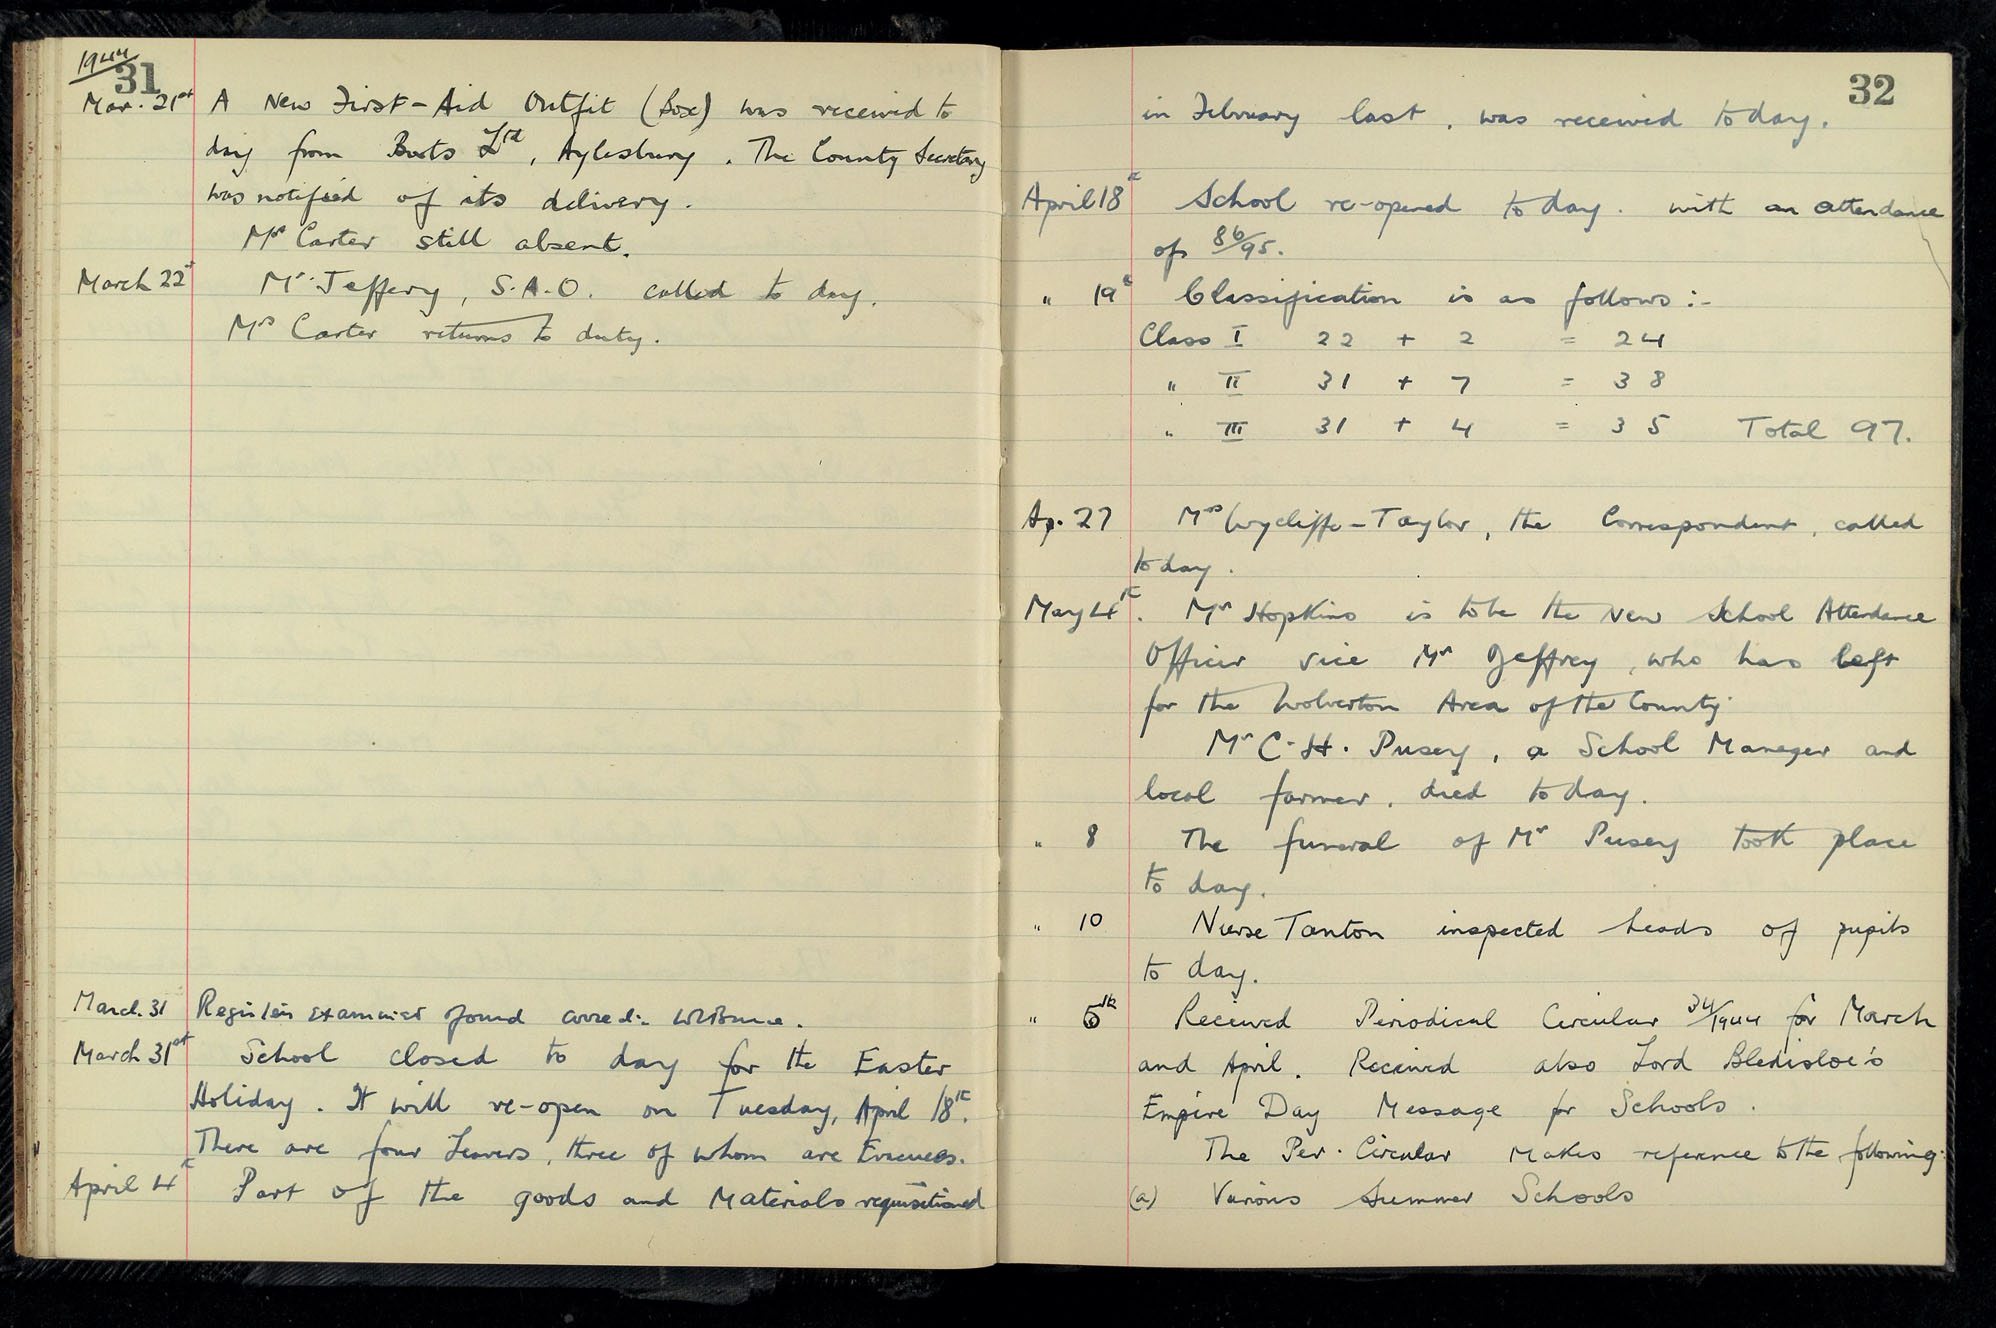 1944
31
Mar. 21st A New First-Aid Outfit (Box) was received to
day from Boots Ltd, Aylesbury. The County Secretary
was notified of its delivery.
Mrs Carter still absent.
March 22nd Mr. Jeffery, S.A.O. called to day.
Mrs Carter returns to duty.
March 31 Registers examined & found correct.
March 31st School closed to day for the Easter
Holiday. It will re-open on Tuesday, April 18th.
There are four Leavers, three of whom are Evacuees.
April 4th Part of the goods and Materials requisitioned
32
in February last, was received today.
April 18th School re-opened today. with an attendance
of 86/95.
" 19th Classification is as follows:-
Class I 22 + 2 = 24
" II 31 + 7 = 38
" III 31 + 4 = 35 Total 97.
Ap. 27 Mrs Wycliffe-Taylor, the Correspondent, called
today.
May 4th. Mr Hopkins is to be the New School Attendance
Officer vice Mr Jeffrey, who has left
for the Wolverton Area of the County.
Mr C.H. Pusey, a School Manager and
local farmer, died today.
" 8 The funeral of Mr Pusey took place
to day.
" 10 Nurse Tanton inspected heads of pupils
to day.
" 6th Received Periodical Circular 34/1944 for March
and April. Received also Lord Bledisloe's
Empire Day Message for Schools.
The Per. Circular Makes reference to the following:
(a) Various Summer Schools